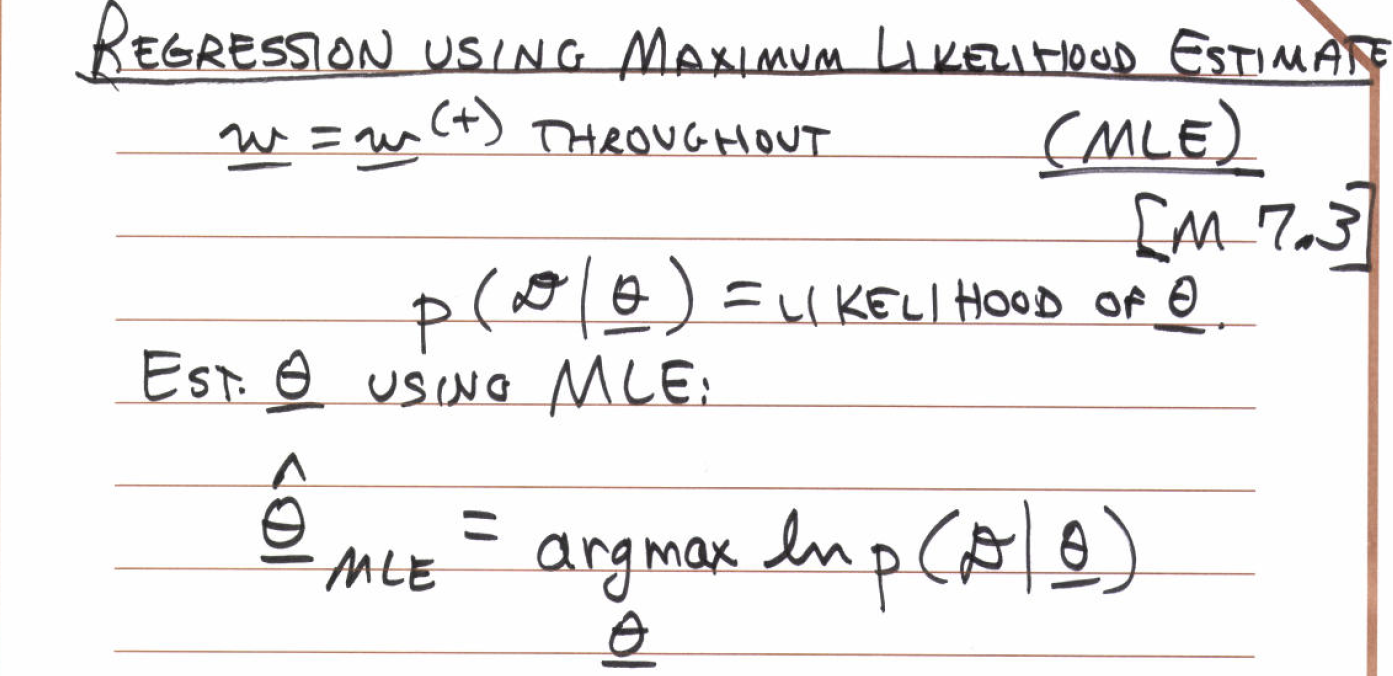 REGRESSION USING MAXIMUM LIKELIHOOD ESTIMATE
w = w (+) THROUGHOUT (MLE)
[M 7.3]
p(D|θ) = LIKELIHOOD OF θ.
EST. θ USING MLE:
θ̂ MLE = argmax ln p(D|θ)
θ